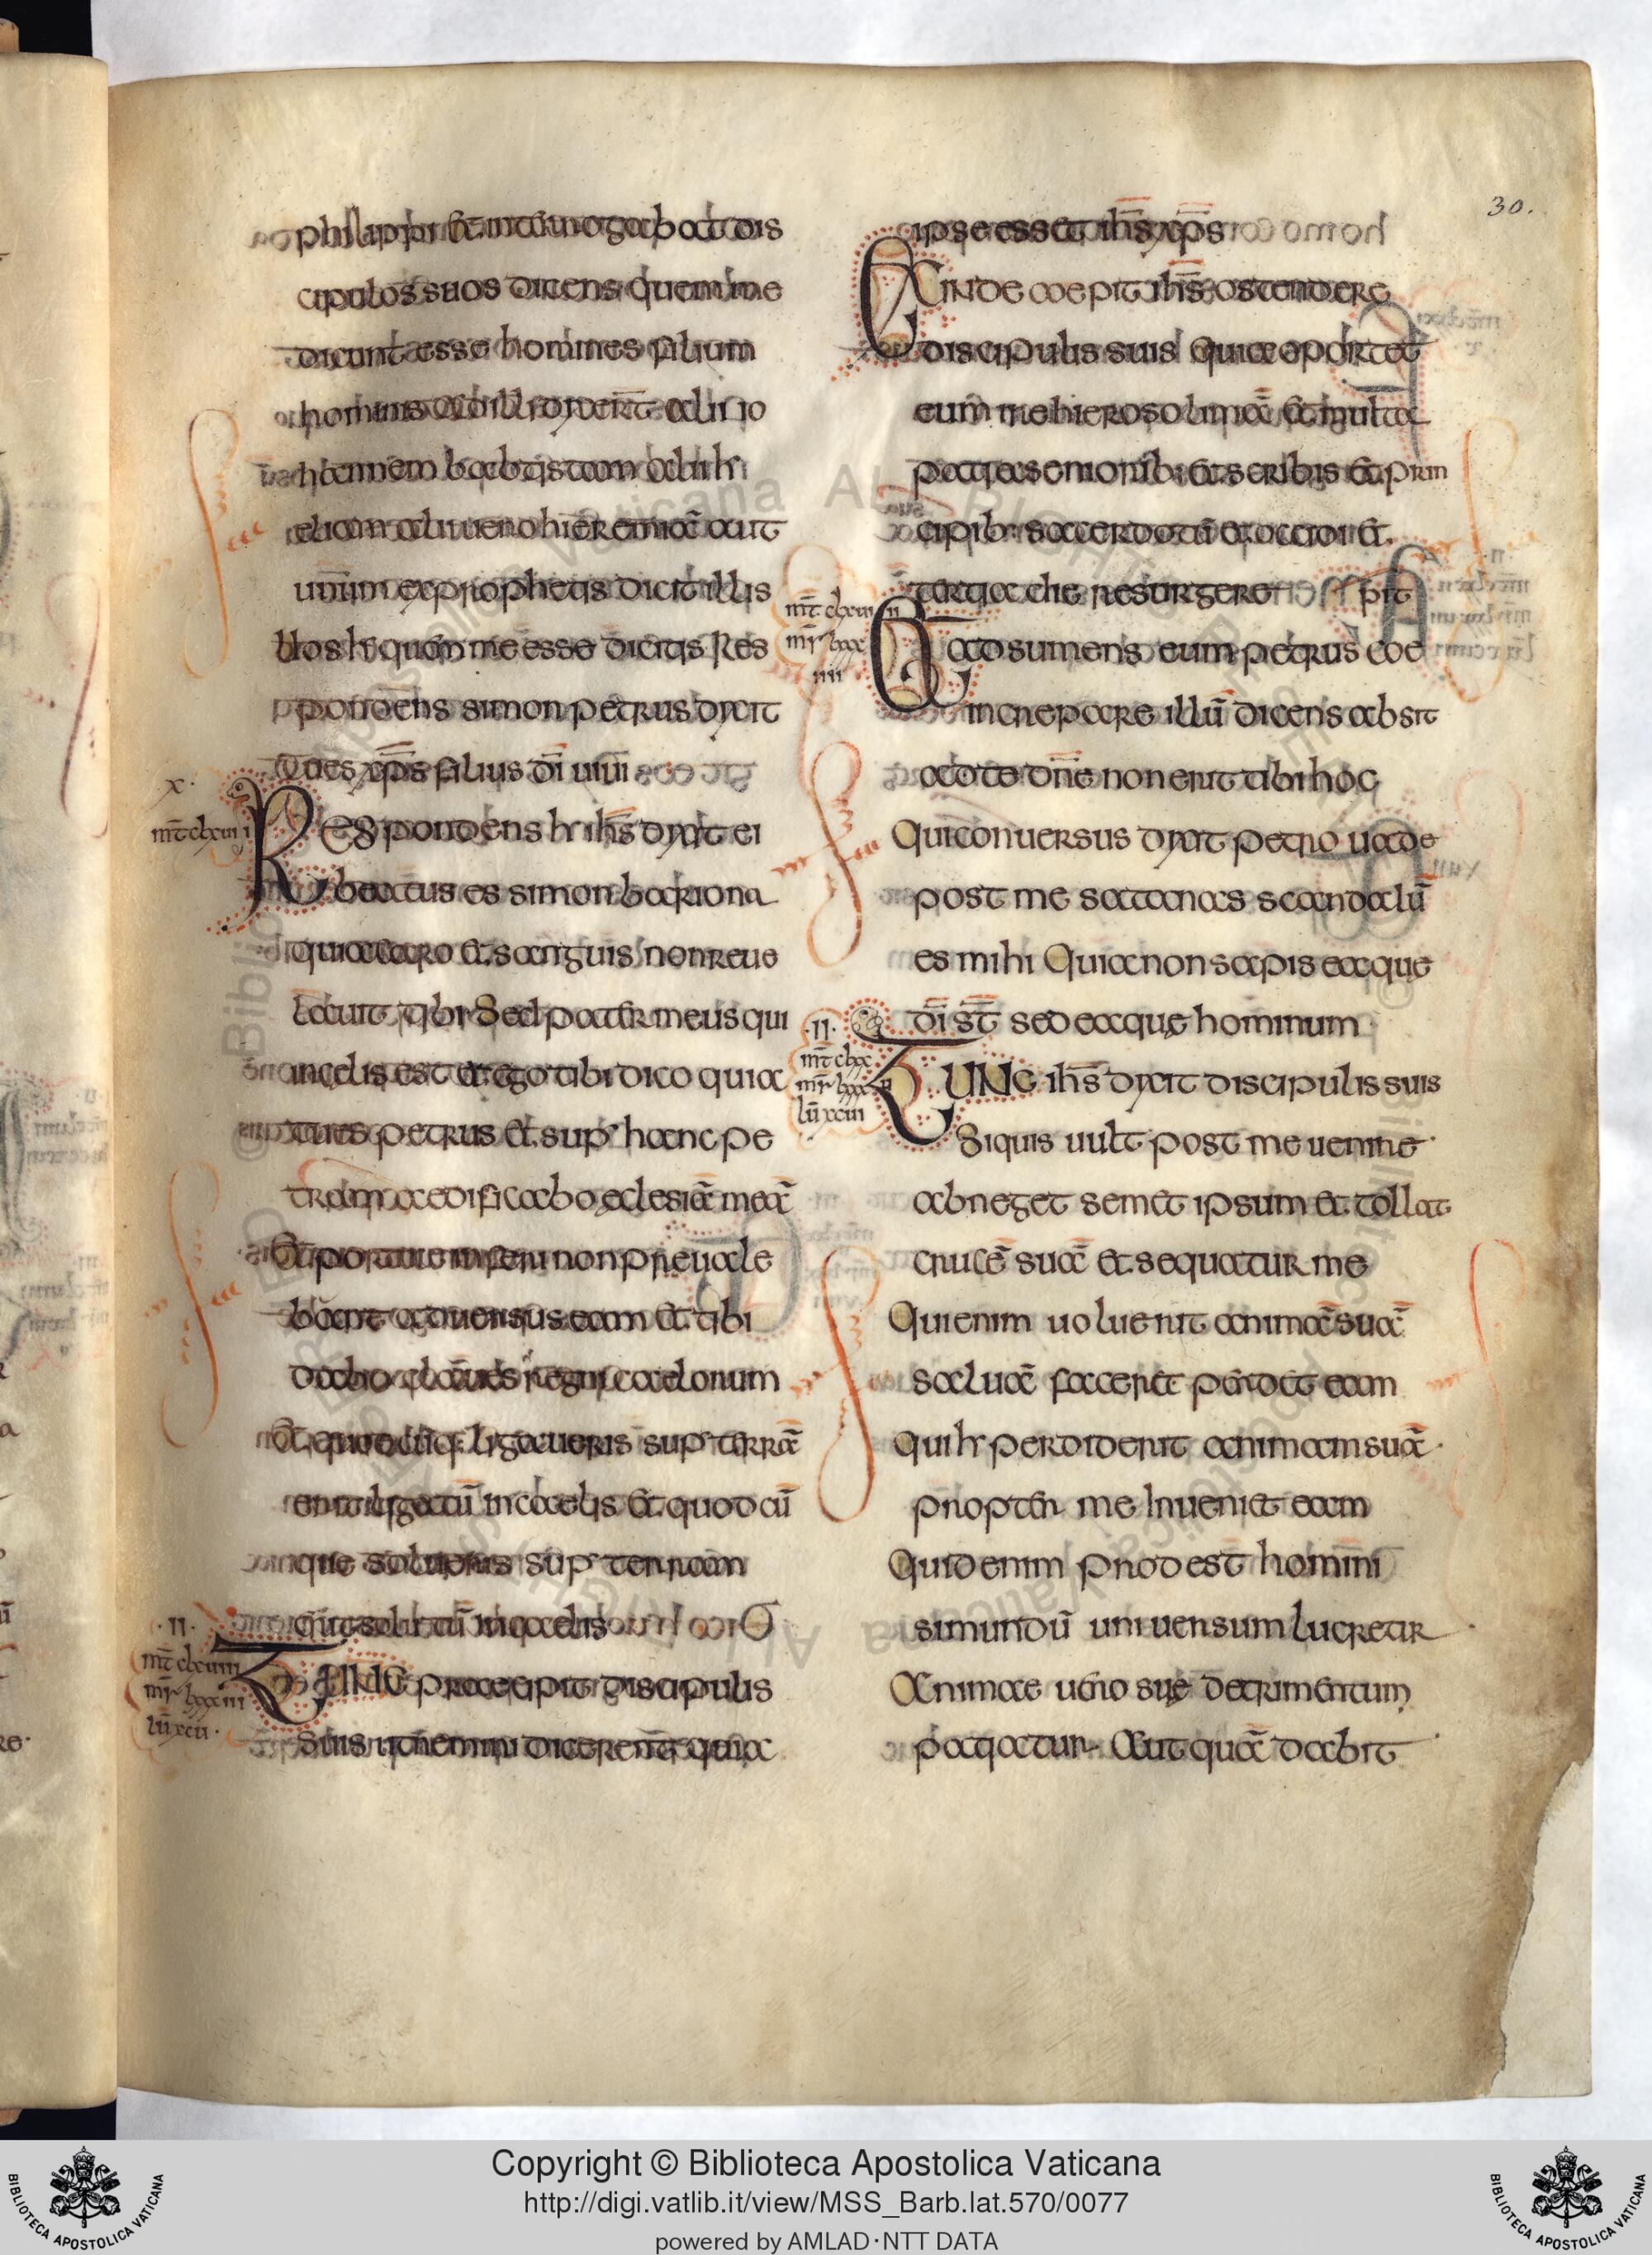 30.
philippi et interrogabat dis
cipulos suos dicens quem me
dicunt esse homines filium
hominis
hannem babtistam alii
eliam alii uero hieremiā aut
unum ex prophetis dicit illis
Uos quem me esse dicitis Res
pondens simon petrus dixit
Tu es xp̄s filius dī uiui
x.
mt̄ clxui
Respondens ih̄s dixit ei
beatus es simon bariona
quia caro et sanguis non reue
lauit tibi Sed pater meus qui
in celis est et ego tibi dico quia
tu es petrus et sup hanc pe
tram aedificabo eclesiā meā
Et porte inferi non preuale
bant aduersus eam et tibi
dabo claues regni caelorum
Et quodcūq: ligaueris sup terrā
erit ligatū in caelis et quodcū
que solueris sup terram
erit solutū in caelis
.ii.
mr̄ lxxxiii
lū xcii.
Tunc praecepit discipulis
suis ut nemini dicerent quia
ipse esset ih̄s xp̄s
Exinde coepit ih̄s ostendere
discipulis suis quia oportet
eum hierosolimā et multa
pati a senioribus et scribis et prin
cipib: sacerdotū et occidi et
tertia die resurgere
pit
mr̄ lxxx
iiii
Et adsumens eum petrus coe
increpare illū dicens absit
ad te dn̄e non erit tibi hoc
Qui conuersus dixit petro uade
post me satanas scandalū
es mihi Quia non sapis ea que
dī st̄ sed ea que hominum
.ii.
mt̄ clxx
mr̄ lxxx
lū xciii
Tunc ih̄s dixit discipulis suis
Siquis uult post me uenire
abneget semet ipsum et tollat
crucē suā et sequatur me
Qui enim uoluerit animā suā
saluā facere perdet eam
qui perdiderit animam suā
propter me Inueniet eam
Quid enim prodest homini
si mundū uniuersum lucretur
Animae uero sue detrimentum
patiatur Aut quā dabit
Copyright © Biblioteca Apostolica Vaticana
http://digi.vatlib.it/view/MSS_Barb.lat.570/0077
powered by AMLAD·NTT DATA
BIBLIOTECA APOSTOLICA VATICANA
BIBLIOTECA APOSTOLICA VATICANA